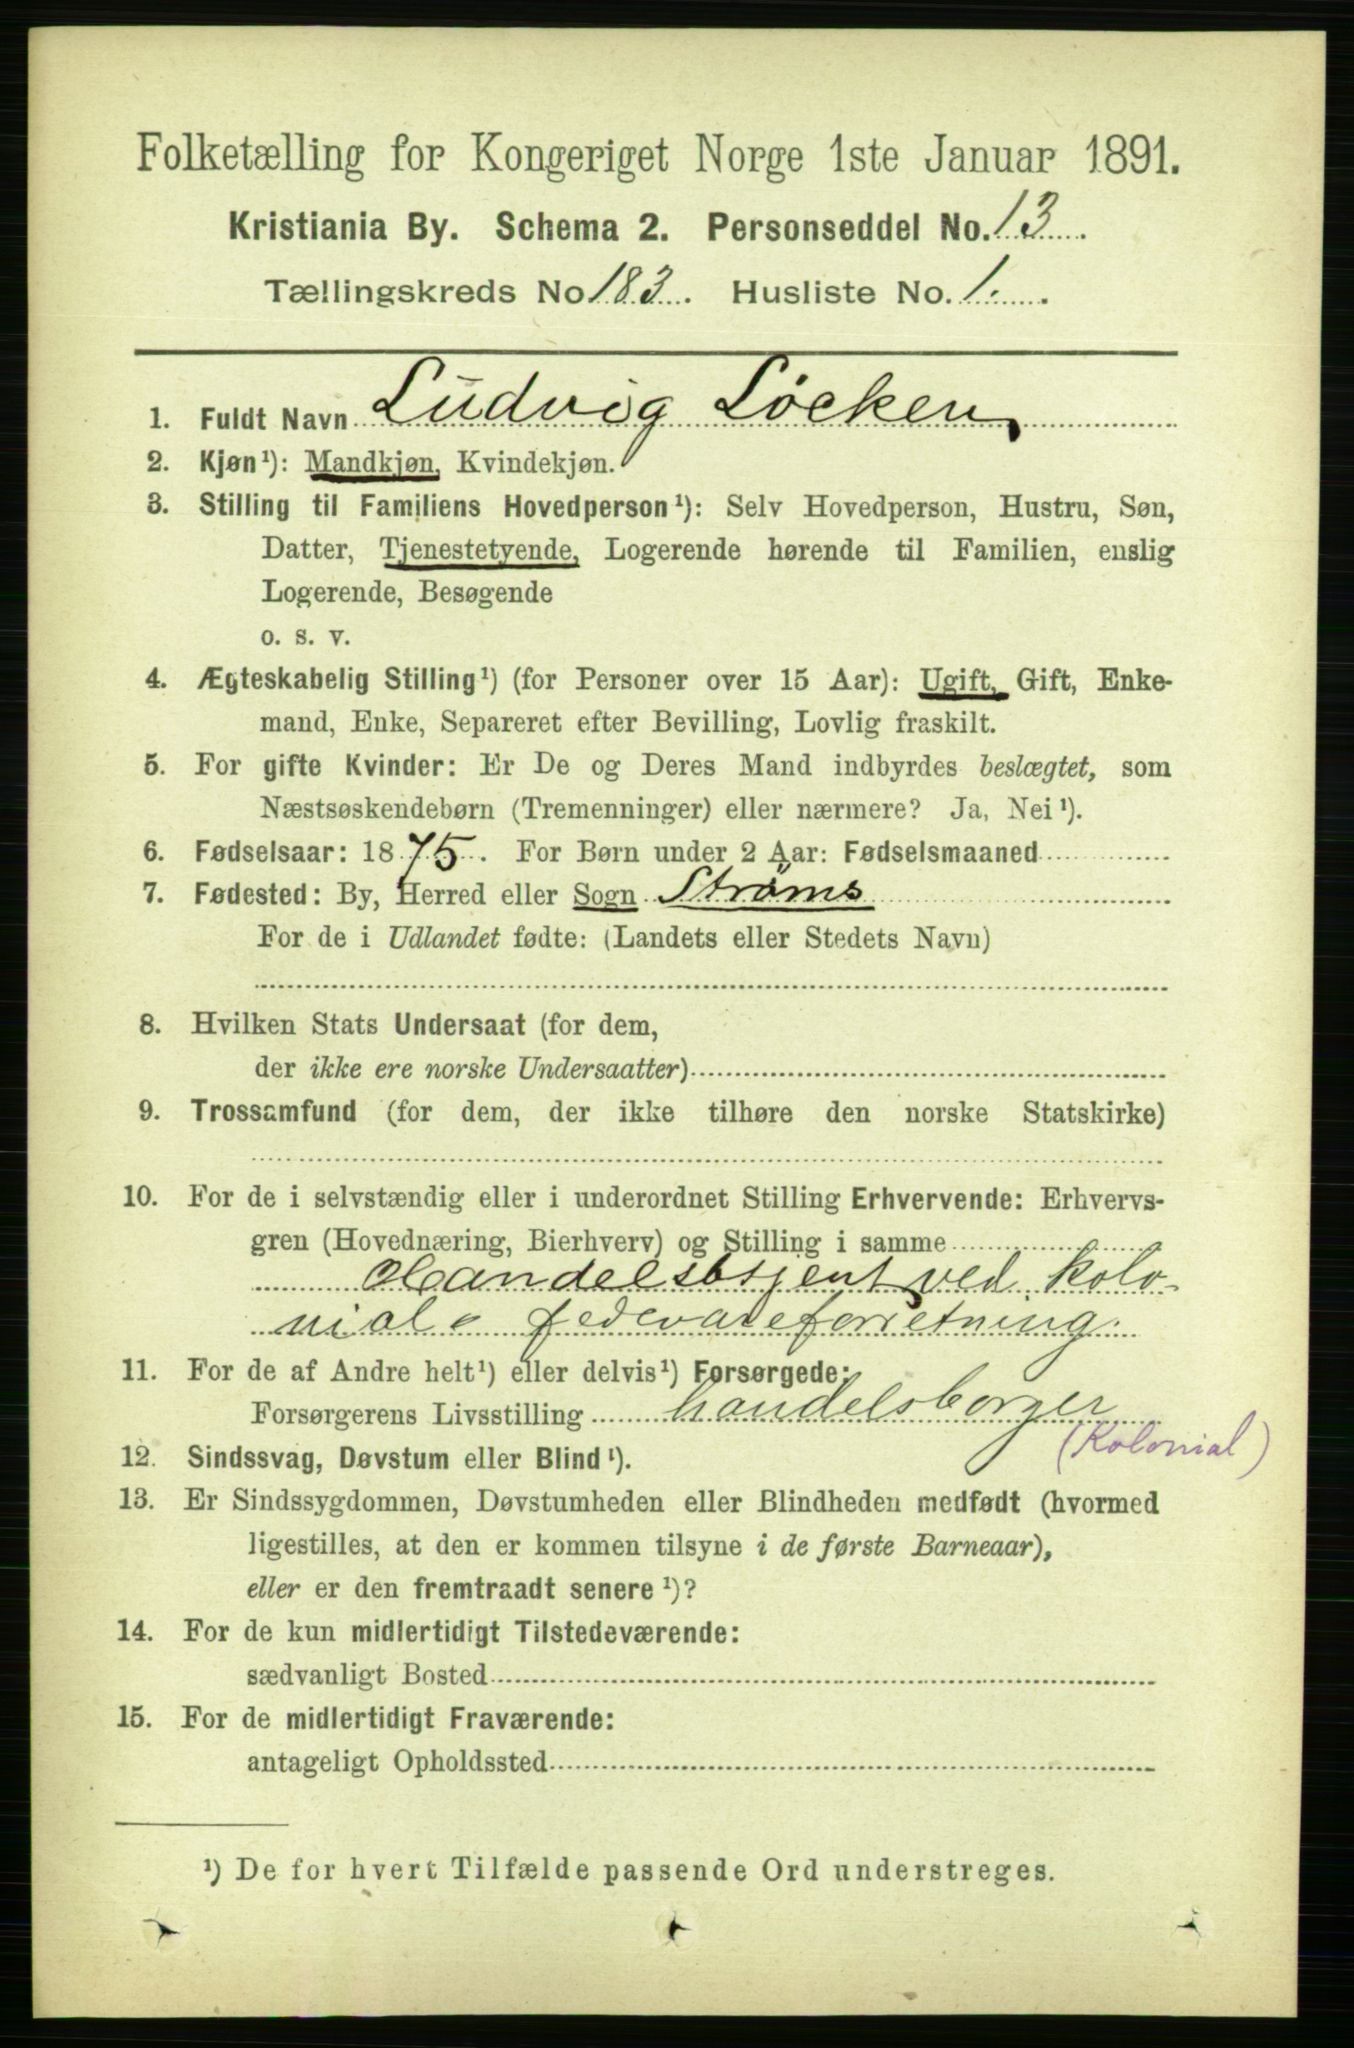 Folketælling for Kongeriget Norge 1ste Januar 1891.
Kristiania By. Schema 2. Personseddel No. 13.
Tællingskreds No 183. Husliste No. 1.
1. Fuldt Navn Ludvig Löcken,
2. Kjøn¹): Mandkjøn, Kvindekjøn.
3. Stilling til Familiens Hovedperson¹): Selv Hovedperson, Hustru, Søn,
Datter, Tjenestetyende, Logerende hørende til Familien, enslig
Logerende, Besøgende
o. s. v.
4. Ægteskabelig Stilling¹) (for Personer over 15 Aar): Ugift, Gift, Enke-
mand, Enke, Separeret efter Bevilling, Lovlig fraskilt.
5. For gifte Kvinder: Er De og Deres Mand indbyrdes beslægtet, som
Næstsøskendebørn (Tremenninger) eller nærmere? Ja, Nei¹).
6. Fødselsaar: 1875. For Børn under 2 Aar: Fødselsmaaned
7. Fødested: By, Herred eller Sogn Ströms
For de i Udlandet fødte: (Landets eller Stedets Navn)
8. Hvilken Stats Undersaat (for dem,
der ikke ere norske Undersaatter)
9. Trossamfund (for dem, der ikke tilhøre den norske Statskirke)
10. For de i selvstændig eller i underordnet Stilling Erhvervende: Erhvervs-
gren (Hovednæring, Bierhverv) og Stilling i samme
Handelsbtjent ved Kolo-
nial & fedevareforretning.
11. For de af Andre helt¹) eller delvis¹) Forsørgede:
Forsørgerens Livsstilling handelsborger
(Kolonial)
12. Sindssvag, Døvstum eller Blind¹).
13. Er Sindssygdommen, Døvstumheden eller Blindheden medfødt (hvormed
ligestilles, at den er kommen tilsyne i de første Barneaar),
eller er den fremtraadt senere¹)?
14. For de kun midlertidigt Tilstedeværende:
sædvanligt Bosted
15. For de midlertidigt Fraværende:
antageligt Opholdssted
¹) De for hvert Tilfælde passende Ord understreges.